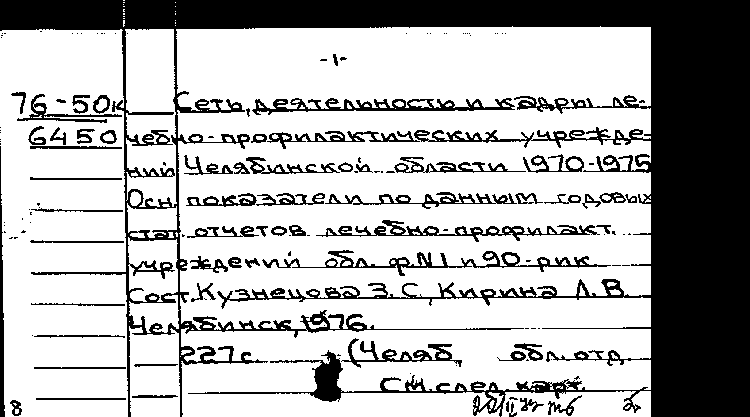 -1-
76-50к Сеть, деятельность и кадры ле-
6450 чебно-профилактических учрежде-
ний Челябинской области 1970-1975
Осн. показатели по данным годовых
стат. отчетов лечебно-профилакт.
учреждений обл. ф.N1 и 90-рик.
Сост. Кузнецова З. С., Кирина Л. В.
Челябинск, 1976.
227 с. (Челяб. обл. отд.
См. след. карт.
8